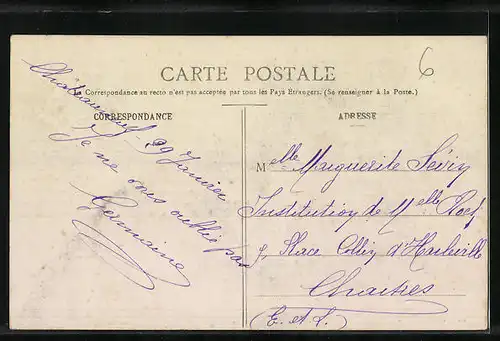 6
CARTE POSTALE
La Correspondance au recto n'est pas acceptée par tous les Pays Etrangers. (Se renseigner à la Poste.)
CORRESPONDANCE
Châteauneuf 29 Janvier
Je ne vous oublie pas
Germaine
ADRESSE
Melle Marguerite
Institution de Melle
Place Collin d'Harleville
Chartres
(E. et L.)